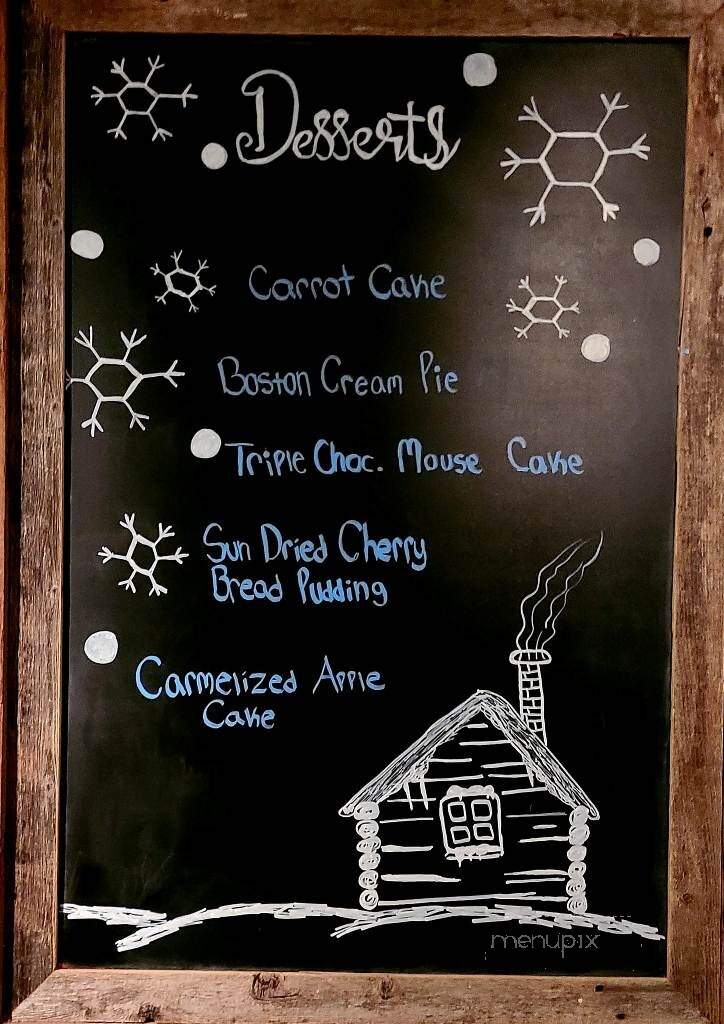 Desserts
Carrot Cake
Boston Cream Pie
Triple Choc. Mouse Cake
Sun Dried Cherry
Bread Pudding
Carmelized Apple
Cake
menupix